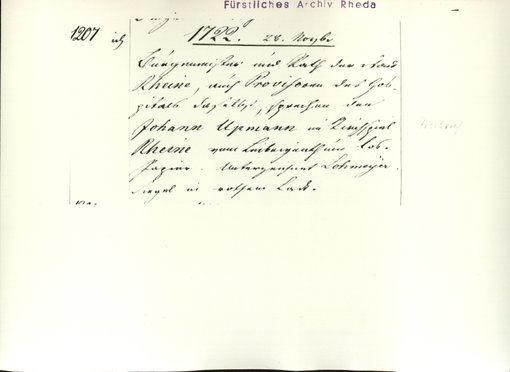 Fürstliches Archiv Rheda
1207
1722. 28. Novbr
Bürgermeister und Rath der Stadt
Rheine, auch Provisoren des Hos-
pitals daselbst, sprechen den
Johann Upmann im Kirchspiel
Rheine vom Leibeigenthum los.
Papier. Unterzeichnet Lohmeyer.
Siegel in rothem Lack.